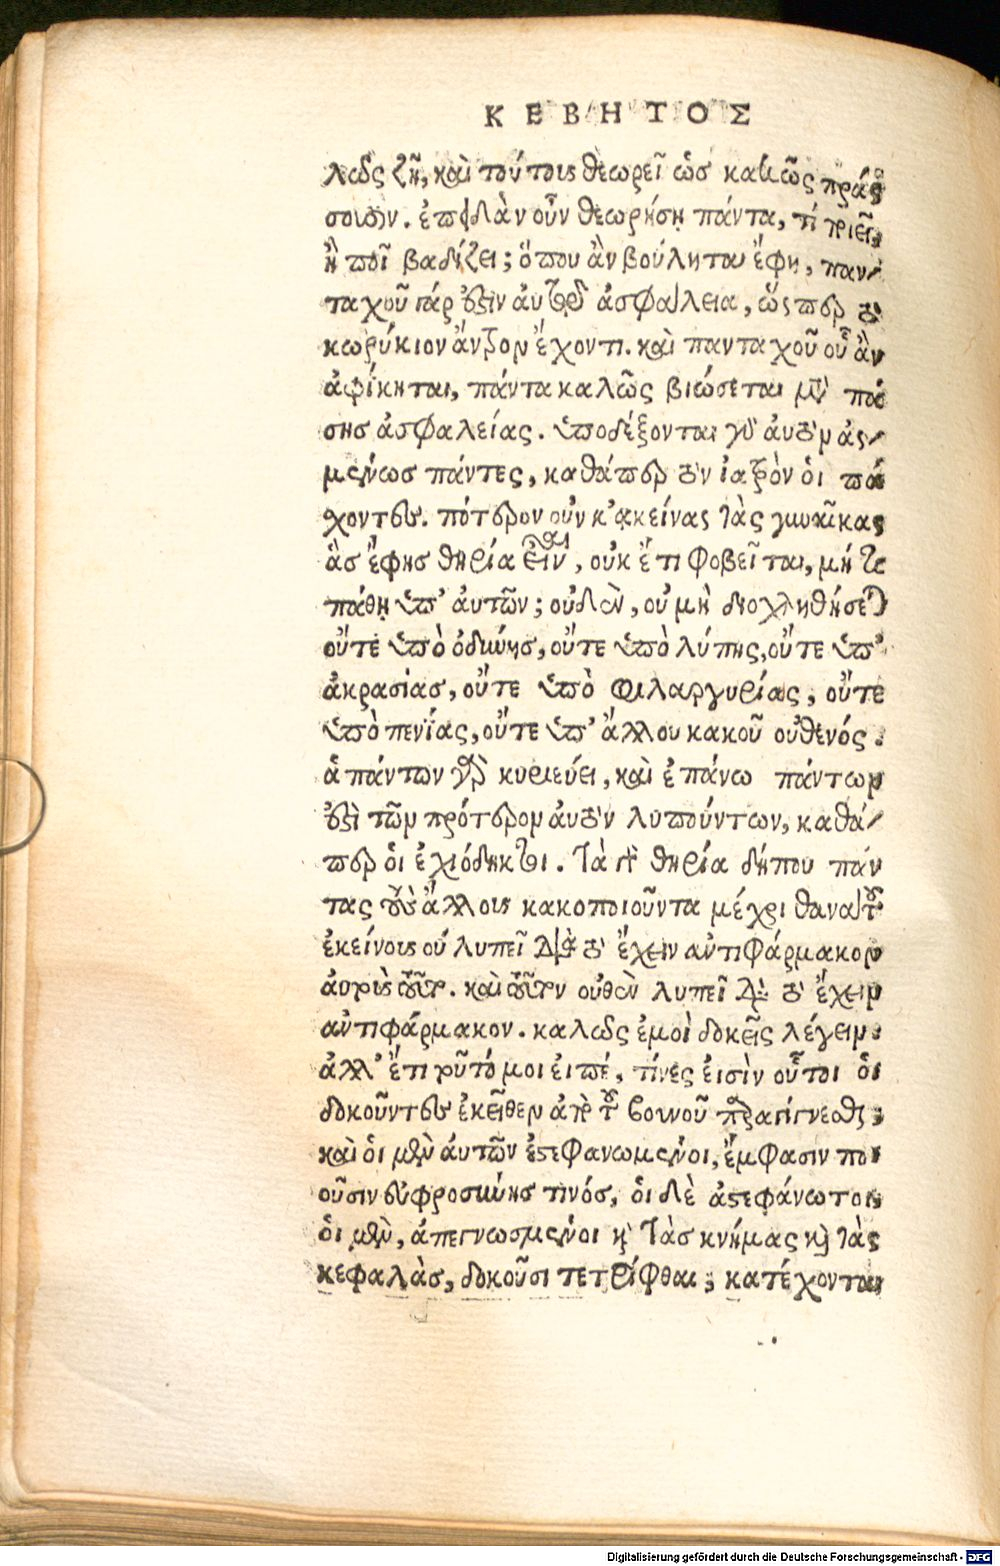 ΚΕΒΗΤΟΣ
λῶς ζῆν, καὶ τούτοις θεωρεῖ ὡς κακῶς πράσ
σουσιν. ἐπειδὰν οὖν θεωρήσῃ πάντα, τί ποιεῖ,
ἢ ποῖ βαδίζει; ὅπου ἂν βούληται ἔφη, παν/
ταχοῦ γάρ ἐστιν αὐτῷ ἀσφάλεια, ὥσπερ τῷ
κωρύκιον ἄντρον ἔχοντι. καὶ πανταχοῦ οὗ ἂν
ἀφίκηται, πάντα καλῶς βιώσεται μετὰ πά
σης ἀσφαλείας. ὑποδέξονται γὰρ αὐτὸν ἀσ/
μένως πάντες, καθάπερ τὸν ἰατρὸν οἱ πά
χοντες. πότερον οὖν κ'ἀκείνας τὰς γυναῖκας
ἃς ἔφης θηρία εἶναι, οὐκ ἔτι φοβεῖται, μή τι
πάθῃ ὑπ' αὐτῶν; οὐδὲν, οὐ μὴ διοχληθήσεται
οὔτε ὑπὸ ὀδύνης, οὔτε ὑπὸ λύπης, οὔτε ὑπ'
ἀκρασίας, οὔτε ὑπὸ φιλαργυρίας, οὔτε
ὑπὸ πενίας, οὔτε ὑπ' ἄλλου κακοῦ οὐθενός.
ἁπάντων γὰρ κυριεύει, καὶ ἐπάνω πάντων
ἐστὶ τῶν πρότερον αὐτὸν λυπούντων, καθά/
περ οἱ ἐχιόδηκτοι. τὰ γὰρ θηρία δήπου πάν
τας τοὺς ἄλλους κακοποιοῦντα μέχρι θανάτου
ἐκείνους οὐ λυπεῖ διὰ τὸ ἔχειν ἀντιφάρμακον
αὐτοὺς. καὶ τοῦτον οὐθὲν λυπεῖ διὰ τὸ ἔχειν
ἀντιφάρμακον. καλῶς ἐμοὶ δοκεῖς λέγειν.
ἀλλ' ἔτι τοῦτό μοι εἰπέ, τίνες εἰσὶν οὗτοι οἱ
δοκοῦντες ἐκεῖθεν ἀπὸ τοῦ βουνοῦ παραγίγνεσθαι;
καὶ οἱ μὲν αὐτῶν ἐστεφανωμένοι, ἔμφασιν ποι
οῦσιν εὐφροσύνης τινός, οἱ δὲ ἀστεφάνωτοι,
οἱ μὲν, ἀπεγνωσμένοι καὶ τὰς κνήμας καὶ τὰς
κεφαλὰς, δοκοῦσι τετρίφθαι, κατέχονται
Digitalisierung gefördert durch die Deutsche Forschungsgemeinschaft - DFG